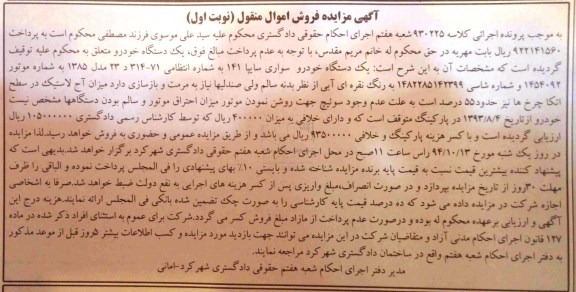 آگهی مزایده فروش اموال منقول (نوبت اول)
به موجب پرونده اجرائی کلاسه ۹۳۰۲۲۵ شعبه هفتم اجرای احکام حقوقی دادگستری محکوم علیه سید علی موسوی فرزند مصطفی محکوم است به پرداخت
۹۲۲۱۴۱۵۶۰ ریال بابت مهریه در حق محکوم له خانم مریم مقدس، با توجه به عدم پرداخت مبالغ فوق، یک دستگاه خودرو متعلق به محکوم علیه توقیف
گردیده است که مشخصات آن به این شرح است: یک دستگاه خودرو سواری سایپا ۱۴۱ به شماره انتظامی ۷۱-۳۱۴ د ۲۳ مدل ۱۳۸۵ به شماره موتور
۱۴۵۴۰۹۲ و شماره شاسی ۱۴۸۲۲۸۵۱۴۲۳۹۹ به رنگ نقره ای آبی از نظر بدنه سالم ولی صندلیها نیاز به مرمت و بازسازی دارد میزان آج لاستیک در سطح
اتکا چرخ ها نیز حدود۵۵ درصد است به علت عدم وجود سوئیچ جهت روشن نمودن موتور میزان احتراق موتور و سالم بودن دستگاهها مشخص نیست
خودرو ازتاریخ ۱۳۹۳/۸/۴ در پارکینگ متوقف است که و دارای خلافی به میزان ۴۰۰۰۰۰ ریال که توسط کارشناس رسمی دادگستری ۱۰۵۰۰۰۰۰۰ ریال
ارزیابی گردیده است و با کسر هزینه پارکینگ و خلافی ۹۳۵۰۰۰۰۰ ریال می باشد و از طریق مزایده عمومی و حضوری به فروش خواهد رسید.لذا مزایده
در روز یک شنبه مورخ ۹۴/۱۰/۱۳ راس ساعت ۱۱صبح در محل اجرای احکام شعبه هفتم حقوقی دادگستری شهر کرد برگزار خواهد شد.بدیهی است که
پیشنهاد کننده بیشترین قیمت نسبت به قیمت پایه برنده مزایده شناخته شده و بایستی ۱۰٪ بهای پیشنهادی را فی المجلس پرداخت نموده و الباقی را ظرف
مهلت ۳۰روز از تاریخ مزایده بپردازد و در صورت انصراف،مبلغ واریزی پس از کسر هزینه های اجرایی به نفع دولت ضبط خواهد شد.صرفا به اشخاصی
اجازه شرکت در مزایده داده می شود که ده درصد قیمت پایه کارشناسی را به صورت چک تضمین شده بانکی فی المجلس ارائه نمایند.هزینه درج این
آگهی و ارزیابی برعهده محکوم له بوده و درصورت عدم پرداخت از مازاد مبلغ فروش کسر می گردد.شرکت برای عموم به استثنای افراد ذکر شده در ماده
۱۲۷ قانون اجرای احکام مدنی آزاد و متقاضیان شرکت در این مزایده می توانند جهت بازدید مورد مزایده و کسب اطلاعات بیشتر ۵روز قبل از موعد مذکور
به دفتر اجرای احکام شعبه هفتم واقع در ساختمان دادگستری شهر کرد مراجعه نمایند.
مدیر دفتر اجرای احکام شعبه هفتم حقوقی دادگستری شهر کرد-امانی